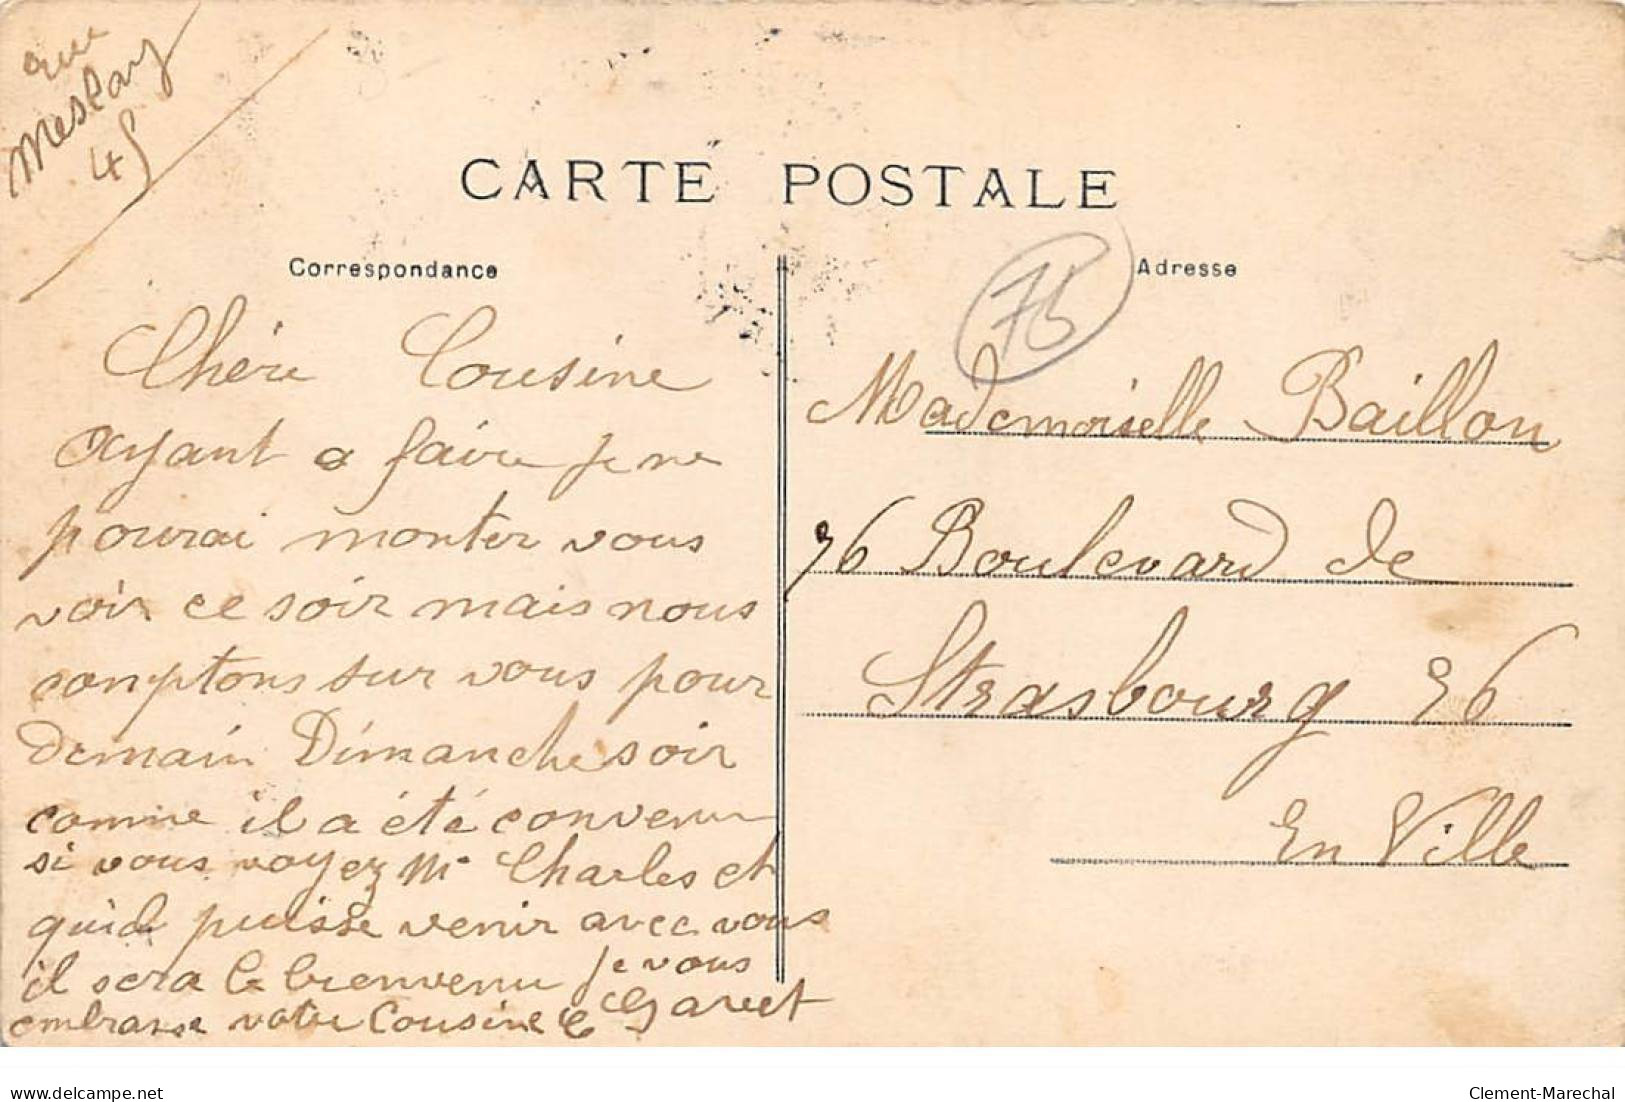 rue
Meslay
45
CARTE POSTALE
Correspondance
Adresse
75
Chère Cousine
Ayant a faire je ne
pourai monter vous
voir ce soir mais nous
comptons sur vous pour
demain Dimanche soir
comme il a été convenu
si vous voyez Mr Charles et
qu'il puisse venir avec vous
il sera le bienvenu je vous
embrasse votre Cousine
Mademoiselle Baillon
76 Boulevard de
Strasbourg 76
En Ville
www.delcampe.net
Clement-Marechal